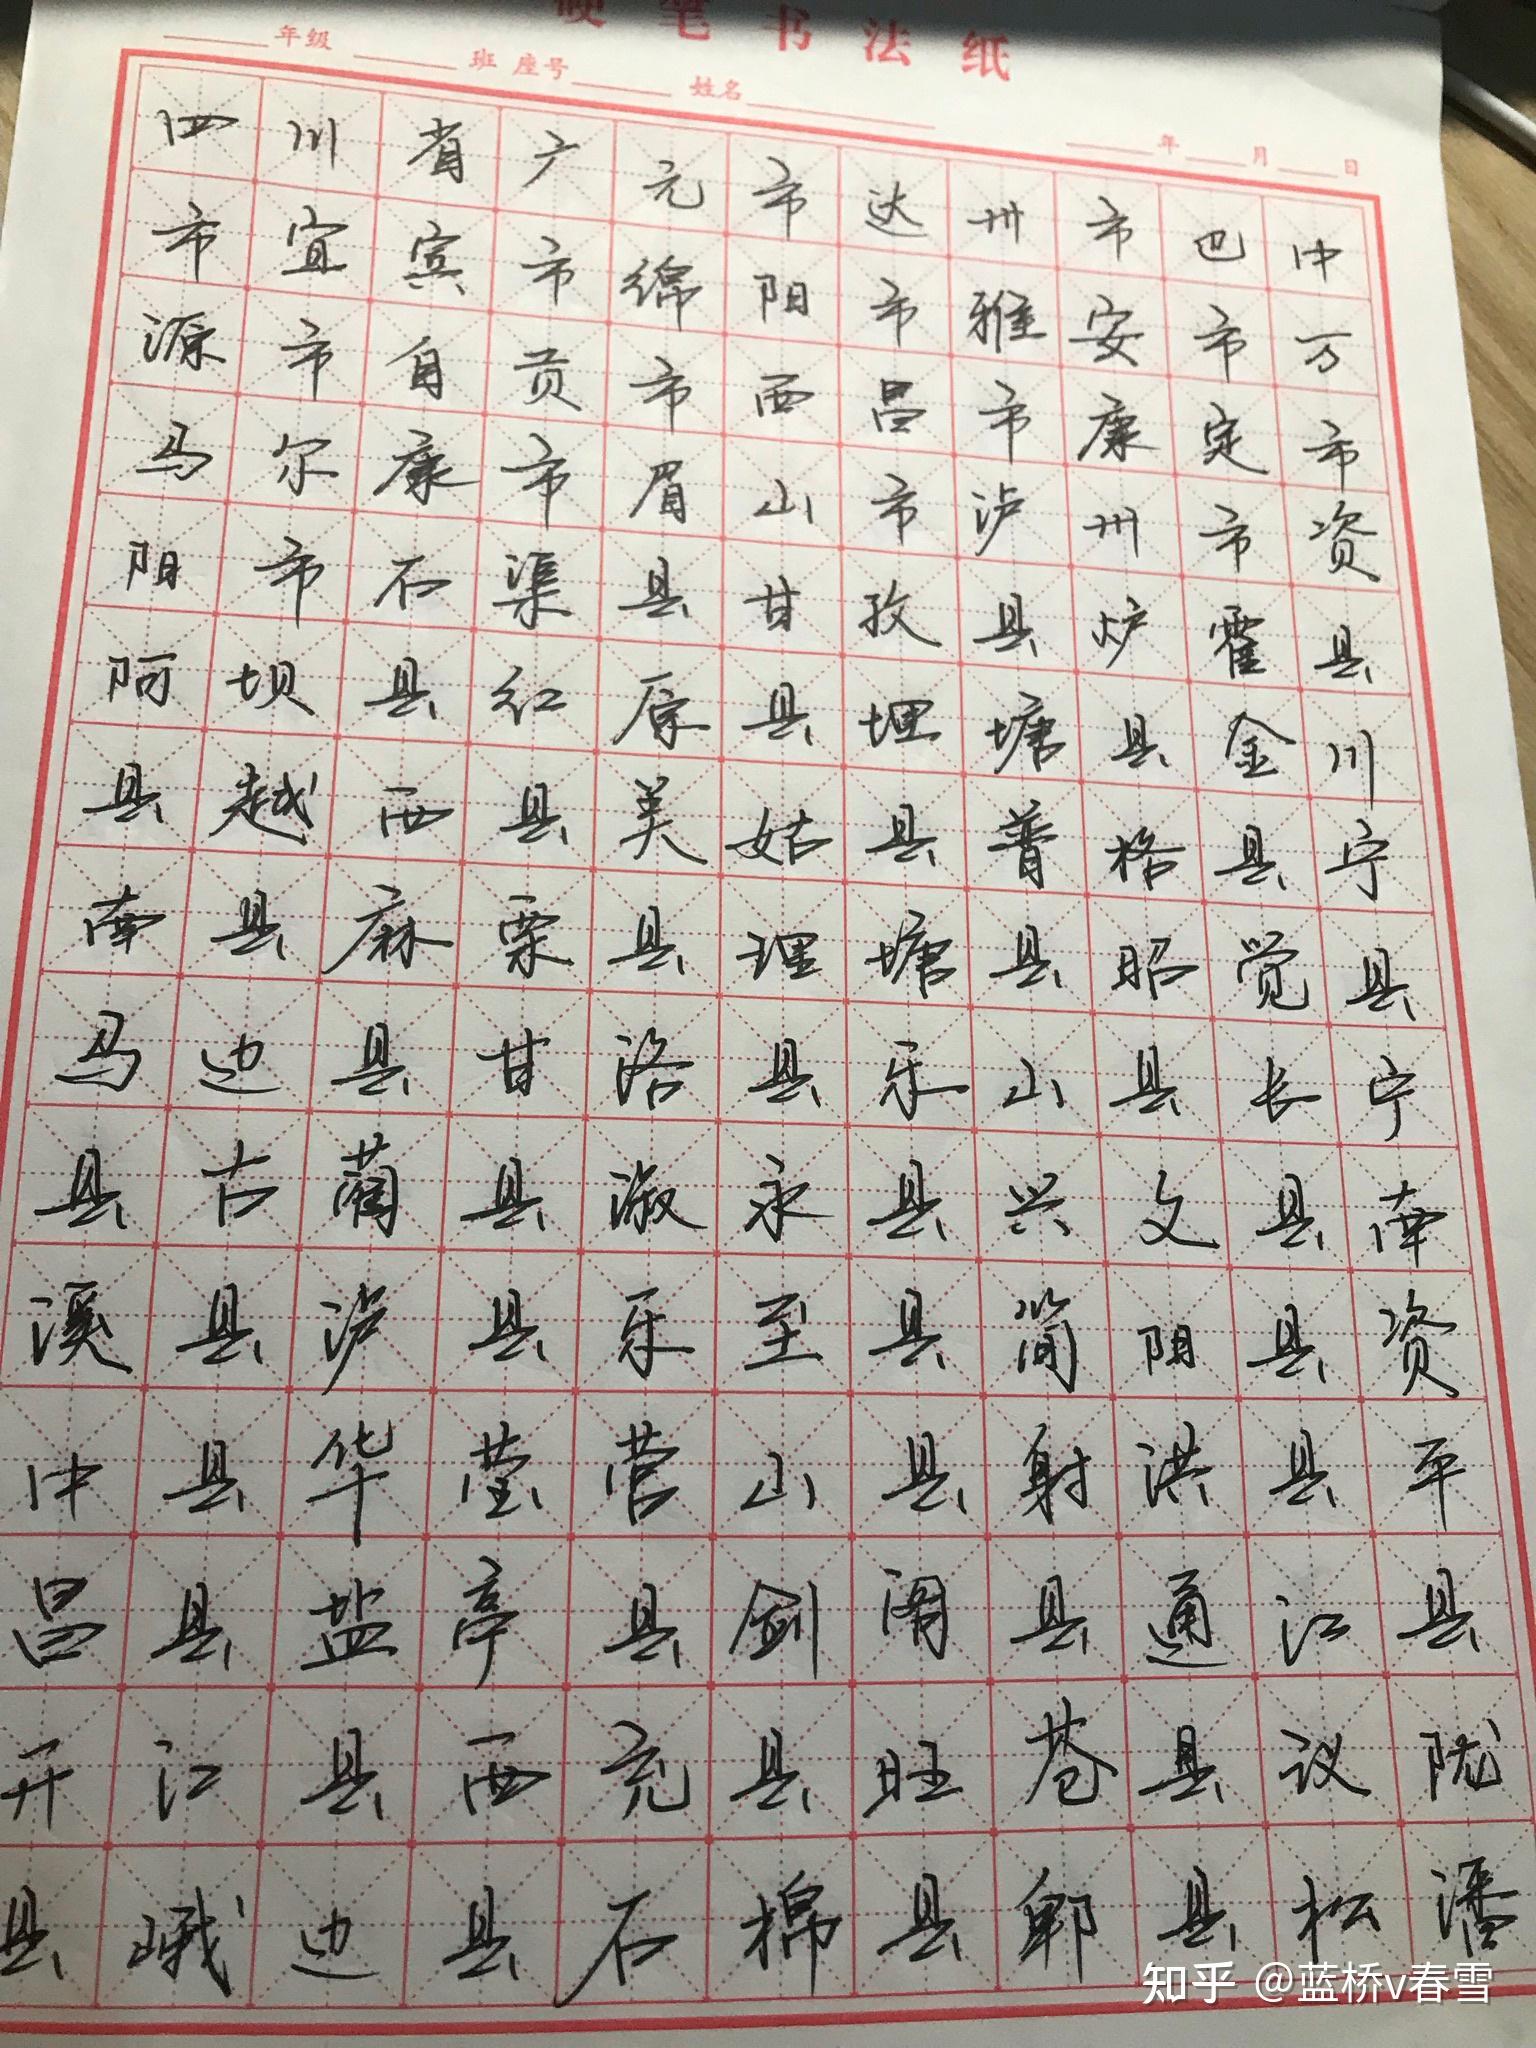 硬笔书法纸
年级 班 座号 姓名 年 月 日
四川省广元市达州市巴中
市宜宾市绵阳市雅安市万
源市自贡市西昌市康定市
马尔康市眉山市泸州市资
阳市石渠县甘孜县炉霍县
阿坝县红原县埋塘县金川
县越西县美姑县普格县宁
南县麻栗县理塘县昭觉县
马边县甘洛县乐山县长宁
县古蔺县溆永县兴文县南
溪县泸县乐至县简阳县资
中县华莹营山县射洪县平
昌县盐亭县剑阁县通江县
开江县西充县旺苍县议陇
县峨边县石棉县郫县松潘
知乎 @蓝桥v春雪